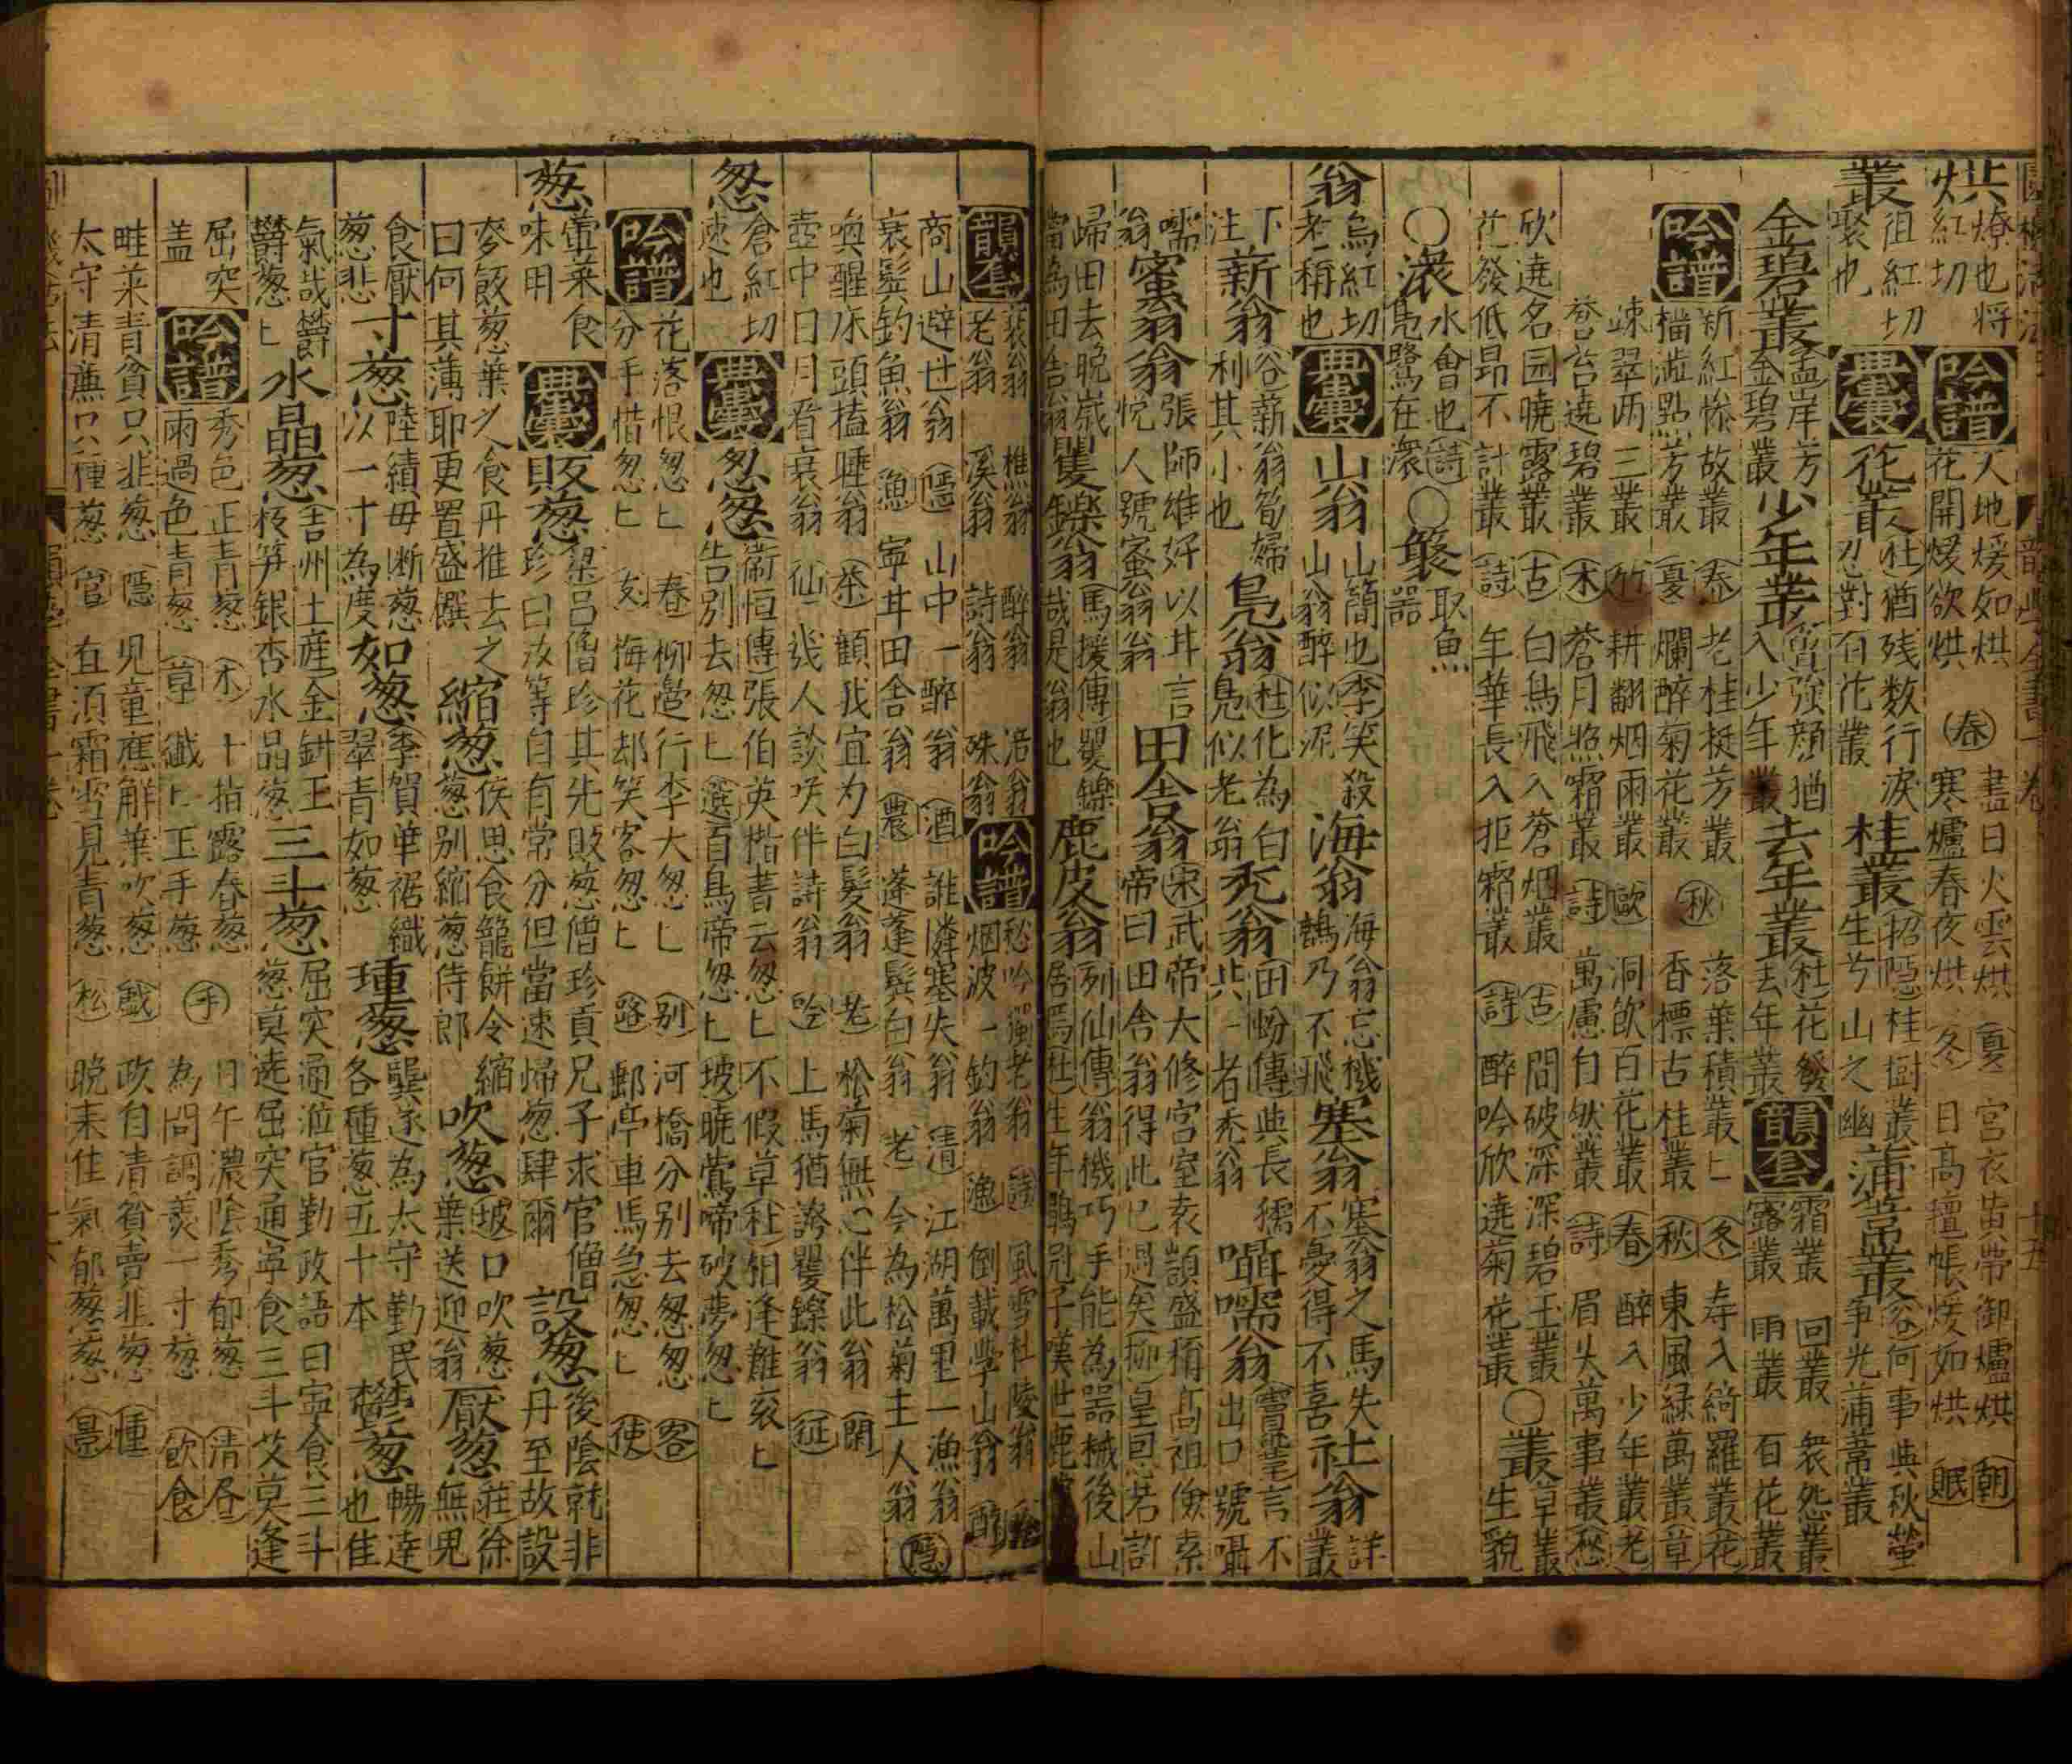 烘
燎也将
紅切
吟譜
天地煖如烘
花開煖欲烘
春
晝日火雲烘
寒爐春夜烘
夏
冬
宮衣黄帶御爐烘
日高壇帳煖如烘
朝
眠
叢
徂紅切
聚也
典囊
花叢
杜猶残数行淚
忍對有花叢
桂叢
招隱桂樹叢
生兮山之幽
蒲萧叢
谷何事典秋螢
争光蒲萧叢
金碧叢
孟岸芳
金碧叢
少年叢
強顔猶
入少年叢
去年叢
杜花發
去年叢
韻套
霜叢
露叢
回叢
雨叢
衆怨叢
百花叢
吟譜
新紅惨故叢
檔澁點芳叢
春
憂
老桂挺芳叢
爛醉菊花叢
秋
落葉積叢〻
香標古桂叢
冬
秋
寿入綺羅叢
東風緑萬叢
花
草
疎翠两三叢
苔遶碧叢
竹
木
耕翻烟雨叢
蒼月照霜叢
歐
詩
洞飲百花叢
萬慮自然叢
春
詩
醉入少年叢
眉头萬事叢
老
愁
欣遶名园曉露叢
花發低昂不計叢
古
詩
白鳥飛入蒼烟叢
年華長入拒霜叢
古
詩
問破深深碧玉叢
醉吟欣遶菊花叢
○叢
草叢
生貌
○潨
水會也詩
鳧鷺在潨
○䍡
取魚
器
翁
烏紅切
老稱也
典囊
山翁
山簡也李笑殺
山翁醉似泥
海翁
海翁忘機
鷗乃不飛
塞翁
塞翁之馬失
不憂得不喜
社翁
詳
叢
下
注
薪翁
谷薪翁笱婦
利其小也
鳧翁
杜化為白
鳧似老翁
禿翁
田蚡傳與長孺
共一老禿翁
囁嚅翁
竇鞏言不
出口號囁
嚅
翁
蜜翁翁
張師雄好以甘言
悅人號蜜翁翁
田舎翁
宋武帝大修宮室袁顗盛稱高祖儉素
帝曰田舎翁得此已過矣柳皇恩若許
歸田去晚歲
當為田舎翁
矍鑠翁
馬援傳矍鑠
哉是翁也
鹿皮翁
列仙傳翁機巧手能為器械後山
居焉杜生年鶡冠子嘆世鹿皮
韻套
蓑翁
老翁
樵翁
溪翁
醉翁
詩翁
涪翁
殊翁
吟譜
愁吟
烟波一釣翁
漁
風雪杜陵翁
倒載學山翁
商山避世翁
衰鬓釣魚翁
隱
漁
山中一醉翁
寧甘田舎翁
酒
農
誰憐塞失翁
蓬蓬鬂白翁
清
老
江湖萬里一漁翁
今為松菊主人翁
隱
喚醒床頭榼睡翁
壺中日月看衰翁
茶
仙
顧我宜为白髪翁
幾人談咲伴詩翁
老
吟
松菊無心伴此翁
上馬猶誇矍鑠翁
閑
征
怱
倉紅切
速也
典囊
怱怱
衞恒傳張伯英楷書云怱〻不假草杜相逢難衮〻
告別去怱〻選百鳥帝怱〻坡曉鶯啼破夢怱〻
吟譜
花落恨怱〻
分手惜怱〻
春
友
柳邊行李大怱〻
梅花却笑客怱〻
别
路
河橋分别去怱怱
郵亭車馬急怱〻
客
使
葱
葷菜食
味用
典囊
販葱
梁吕僧珍其先販葱僧珍貢兄子求官僧
珍曰汝等自有常分但當速歸葱肆爾
設葱
後陰就非
丹至故設
麥飯葱葉之食丹推去之
曰何其薄耶更置盛饌
縮葱
侯思食籠餅令縮
葱别縮葱侍郎
吹葱
坡口吹葱
葉送迎翁
厭葱
莊徐
無鬼
食厭
葱悲
寸葱
陸績毋断葱
以一寸為度
如葱
李賀華裾織
翠青如葱
種葱
龔遂為太守勤民
各種葱五十本
欝葱
暢達
也佳
氣哉欝
欝葱〻
水晶葱
吉州土産金餅玉
枝笋銀杏水晶葱
三斗葱
屈突通涖官勤政語曰寜食三斗
葱莫遶屈突通寧食三斗艾莫逢
屈突
盖
吟譜
秀色正青葱
雨過色青葱
木
草
十指露春葱
纖〻玉手葱
手
日午濃陰秀郁葱
為問調羹一寸葱
清昼
飲食
畦菜青貧只韮葱
太守清薦只種葱
隱
官
児童應解葉吹葱
直須霜雪見青葱
戯
松
政自清貧賣韮葱
晚来佳氣郁葱葱
種
景